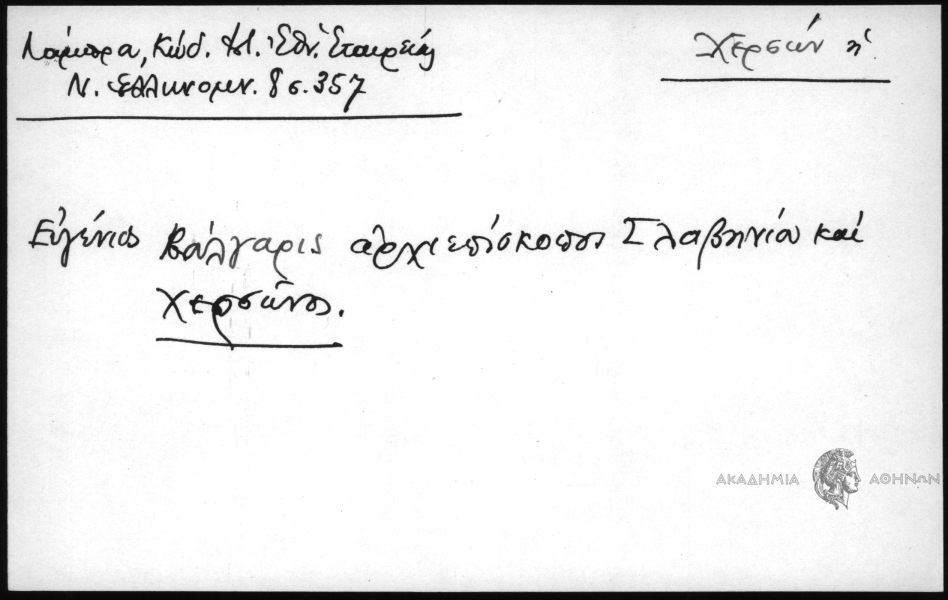 Λάμπρα, Κώδ. Ἱστ. Ἐθν. Ἑταιρείας
Ν. Ἑλληνομν. 8 σ. 357
Χερσών ἡ.
Εὐγένιος Βούλγαρις ἀρχιεπίσκοπος Σλαβηνίου καὶ
Χερσῶνος.
ΑΚΑΔΗΜΙΑ ΑΘΗΝΩΝ